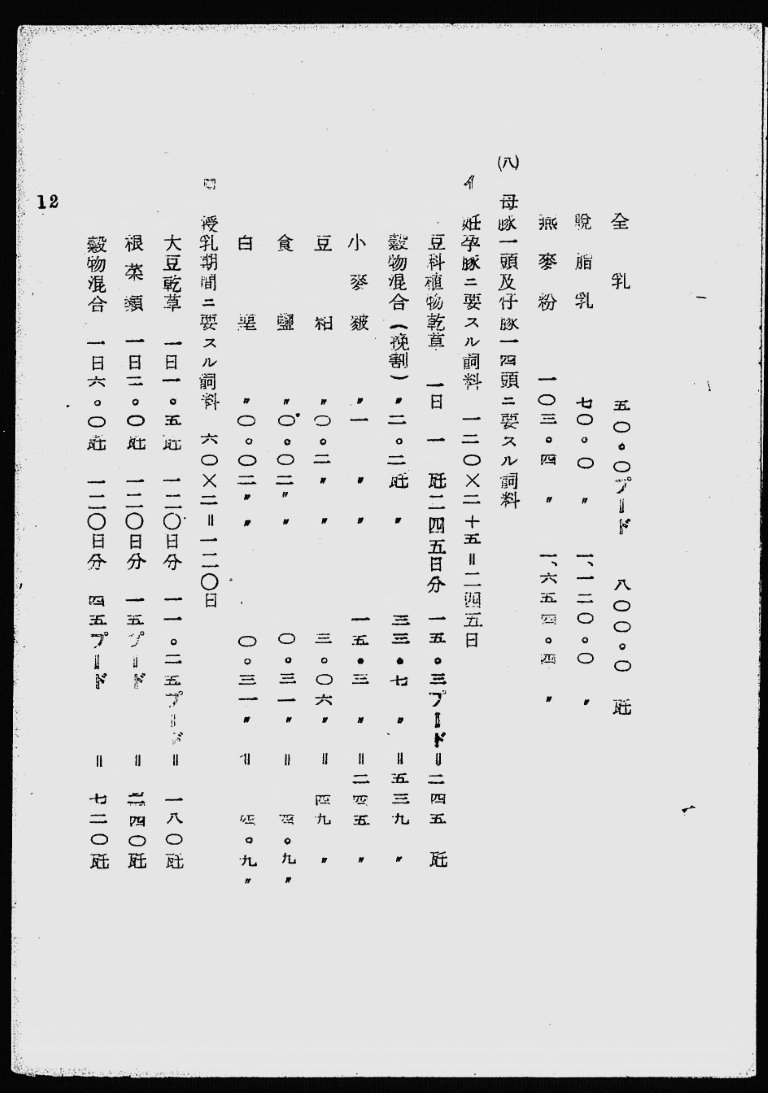 全乳 五〇。〇プード 八〇〇。〇瓩
脱脂乳 七〇。〇〃 一、一二〇。〇〃
燕麥粉 一〇三。四〃 一、六五四。四〃
(八) 母豚一頭及仔豚一四頭ニ要スル飼料
イ 妊孕豚ニ要スル飼料 一二〇×二十五=二四五日
豆科植物乾草 一日 一瓩 二四五日分 一五。三プード=二四五瓩
穀物混合(挽割) 〃 二。二瓩 〃 三三。七〃=五三九〃
小麥皴 〃 一〃 〃 一五。三〃=二四五
豆粕 〃 〇。二〃 〃 三。〇六〃=四九〃
食鹽 〃 〇。〇二〃 〃 〇。三一〃=四。九〃
白堊 〃 〇。〇二〃 〃 〇。三一〃=四。九〃
ロ 授乳期間ニ要スル飼料 六〇×二=一二〇日
大豆乾草 一日一。五瓩 一二〇日分 一一。二五プード=一八〇瓩
根菜類 一日二。〇瓩 一二〇日分 一五プード=二四〇瓩
穀物混合 一日六。〇瓩 一二〇日分 四五プード=七二〇瓩
12